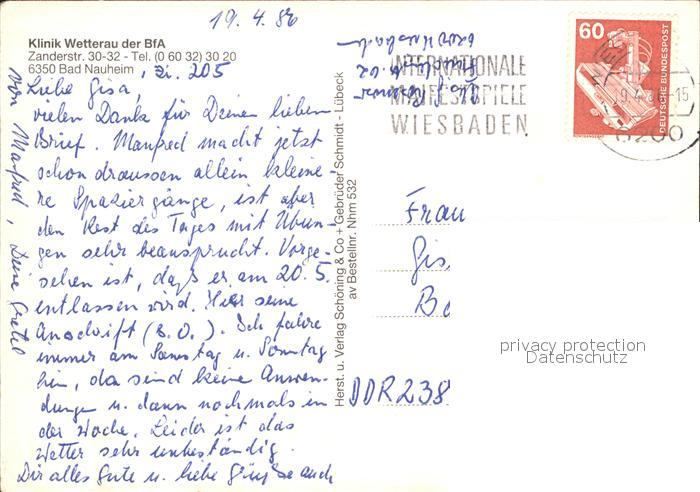 19. 4. 86
Klinik Wetterau der BfA
Zanderstr. 30-32 - Tel. (0 60 32) 30 20
6350 Bad Nauheim , Zi. 205
Liebe Gisa,
vielen Dank für Deinen lieben
Brief. Manfred macht jetzt
schon draussen allein kleine-
re Spaziergänge, ist aber
den Rest des Tages mit Übun-
gen sehr beansprucht. Vorge-
sehen ist, daß er am 20. 5.
entlassen wird. Hier seine
Anschrift (s. O.). Ich fahre
immer am Samstag u. Sonntag
hin, da sind keine Anwen-
dungen u. dann nochmals in
der Woche. Leider ist das
Wetter sehr unbeständig.
Dir alles Gute u. liebe Grüße auch
von Manfred, Deine Gretel
Herst. u. Verlag Schöning & Co + Gebrüder Schmidt - Lübeck
av Bestellnr. Nhm 532
6200 Wiesbaden
INTERNATIONALE
MAIFESTSPIELE
WIESBADEN
60
DEUTSCHE BUNDESPOST
6200
Frau
Gis
Bo
DDR 238
privacy protection
Datenschutz